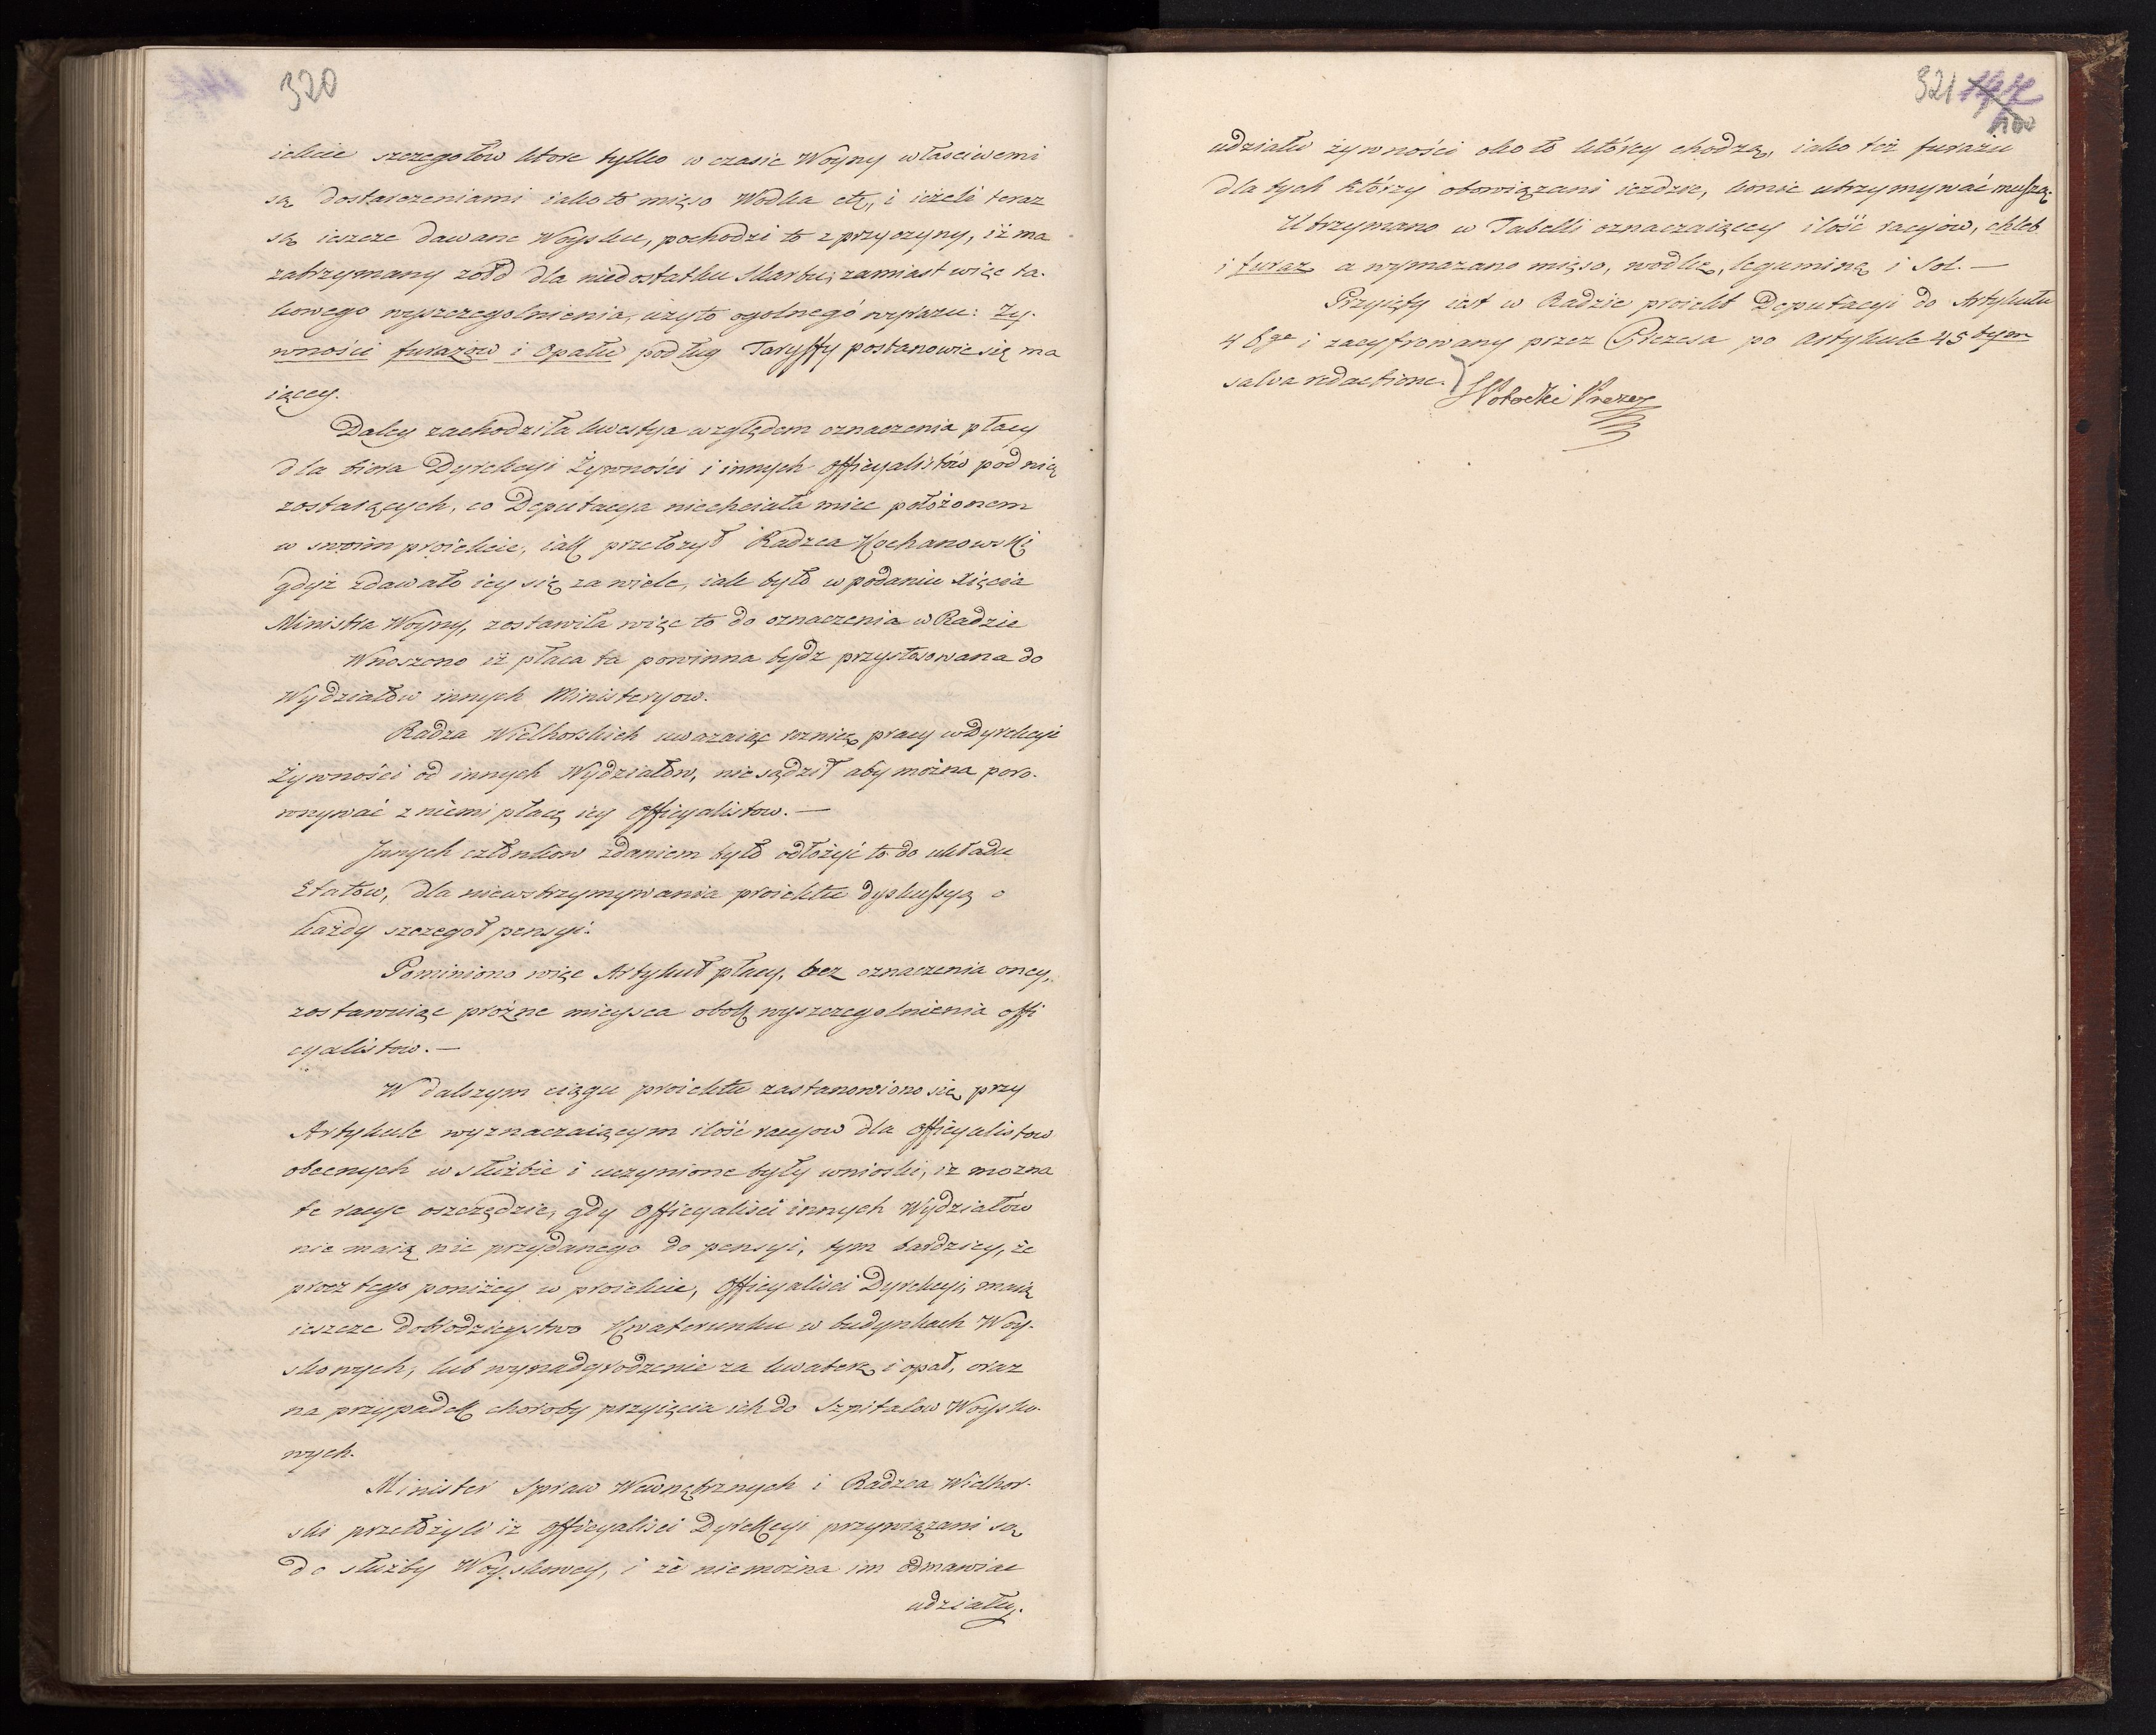 320
iekcie szczegołow ktore tylko w czasie Woyny własciwemi
są dostarczeniami iakoto mięso Wodka etc, i ieżeli teraz
są ieszcze dawane Woysku, pochodzi to z przyczyny, iż ma
zatrzymany żołd dla niedostatku Skarbu; zamiast więc ta-
kowego wyszczegolnienia, użyto ogolnego wyrazu: Ży-
wności furażow i Opału podług Taryffy postanowić się ma
iącey.
Daley zachodziła kwestya względem oznaczenia płacy
dla biora Dyrekcyi Żywności i innych officyalistów pod nią
zostaiących, co Deputacya niechciała miec położonem
w swoim proiekcie, iak przełożył Radzca Kochanowski
gdyż zdawało iey się za wiele, iak było w podaniu Xięcia
Ministra Woyny, zostawiła więc to do oznaczenia w Radzie
Wnoszono iż płaca ta powinna bydz przystosowana do
Wydziałow innych Ministeryow.
Radza Wielhorskich uwazaiąc roznicę pracy w Dyrekcyi
Żywności od innych Wydziałow, nie sądził aby można poro-
wnywać z niemi płacę iey officyalistow. —
Innych członkow zdaniem było odłożyć to do układu
Etatow, dla niewstrzymywania proiektu dyskussyą o
każdy szczegoł pensyi.
Pominiono więc Artykuł płacy, bez oznaczenia oney,
zostawuiąc prożne mieysca obok wyszczegolnienia offi
cyalistow. —
W dalszym ciągu proiektu zastanowiono się przy
Artykule wyznaczaiącym ilość racyow dla Officyalistow
obecnych w służbie i uczynione były wnioski, iz mozna
te racye oszczędzic, gdy Officyalisci innych Wydziałow
nie maią nic przydanego do pensyi, tym bardziey, że
procz tego poniżey w proiekcie, Officyalisci Dyrekcyi, maią
ieszcze dobrodzieystwo Kwaterunku w budynkach Woy-
skowych, lub wynadgrodzenie za kwaterę i opał, oraz
na przypadek choroby przyięcia ich do Szpitalow Woysko-
wych.
Minister Spraw Wewnętrznych i Radzca Wielhor-
ski przełożyli iz officyalisci Dyrekcyi przywiązani są
do służby Woyskowey, i że nie można im odmawiac
udziału.
321
100
udziału żywności oko to którey chodzą, iako też furażu
dla tych którzy obowiązani iezdzic, konie utrzymywać muszą.
Utrzymano w Tabelli oznaczaiącey ilość racyow, chleb
i furaz a wymazano mięso, wodkę, leguminę i Sol. —
Przyięty iest w Radzie proiekt Deputacyi do Artykułu
46go i zacyfrowany przez Prezesa po Artykule 45tym
salva redactione.
Potocki Prezes